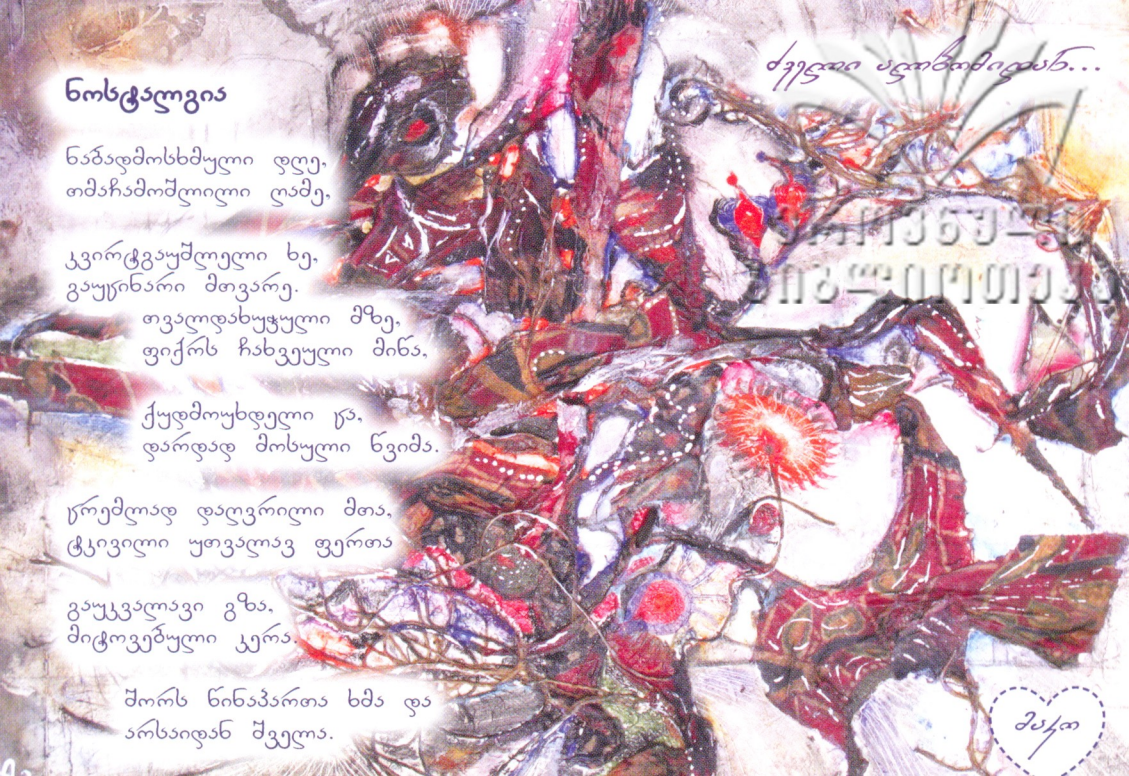 ძველი ალბომიდან...
ნოსტალგია
ნაბადმოსხმული დღე,
თმაჩამოშლილი ღამე,
კვირტგაუშლელი ხე,
გაუცინარი მთვარე.
თვალდახუჭული მზე,
ფიქრს ჩახვეული მიწა,
ქუდმოუხდელი ცა,
დარდად მოსული წვიმა.
ცრემლად დაღვრილი მთა,
ტკივილი უთვალავ ფერთა
გაუკვალავი გზა,
მიტოვებული კერა
შორს წინაპართა ხმა და
არსაიდან შველა.
მაკო
ეროვნული
ბიბლიოთეკა